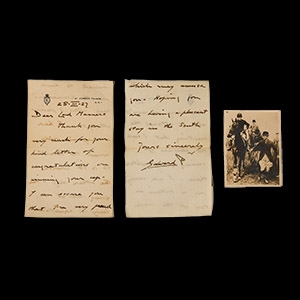 28.III.27
Dear Lord Manners
Thank you
very much for your
kind letter of
congratulations on
winning your cup.
I can assure you
that I'm very proud
which may amuse
you. Hoping you
are having a pleasant
stay in the South.
Yours sincerely
Edward P